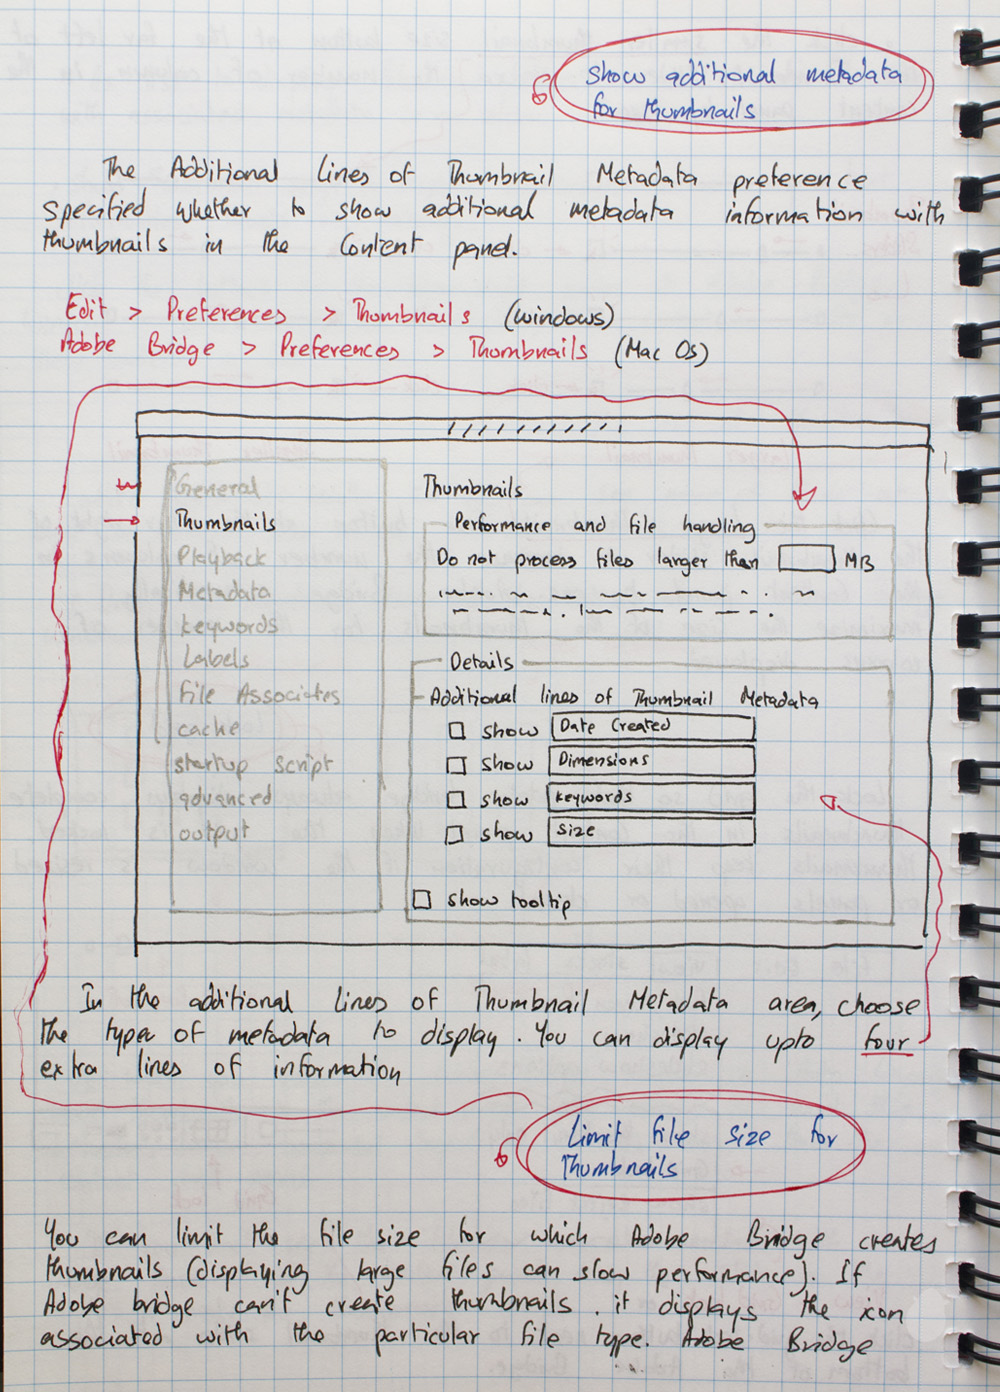 show additional metadata
for thumbnails
The Additional Lines of Thumbnail Metadata preference
specified whether to show additional metadata information with
thumbnails in the Content panel.
Edit > Preferences > Thumbnails (windows)
Adobe Bridge > Preferences > Thumbnails (Mac Os)
General
Thumbnails
Playback
Metadata
keywords
Labels
file Associates
cache
startup script
advanced
output
Thumbnails
Performance and file handling
Do not process files larger than MB
Details
Additional lines of Thumbnail Metadata
show Date Created
show Dimensions
show keywords
show size
show tooltip
In the additional Lines of Thumbnail Metadata area, choose
the type of metadata to display. You can display upto four
extra lines of information
Limit file size for
Thumbnails
You can limit the file size for which Adobe Bridge creates
thumbnails (displaying large files can slow performance). If
Adobe bridge can't create thumbnails. it displays the icon
associated with the particular file type. Adobe Bridge